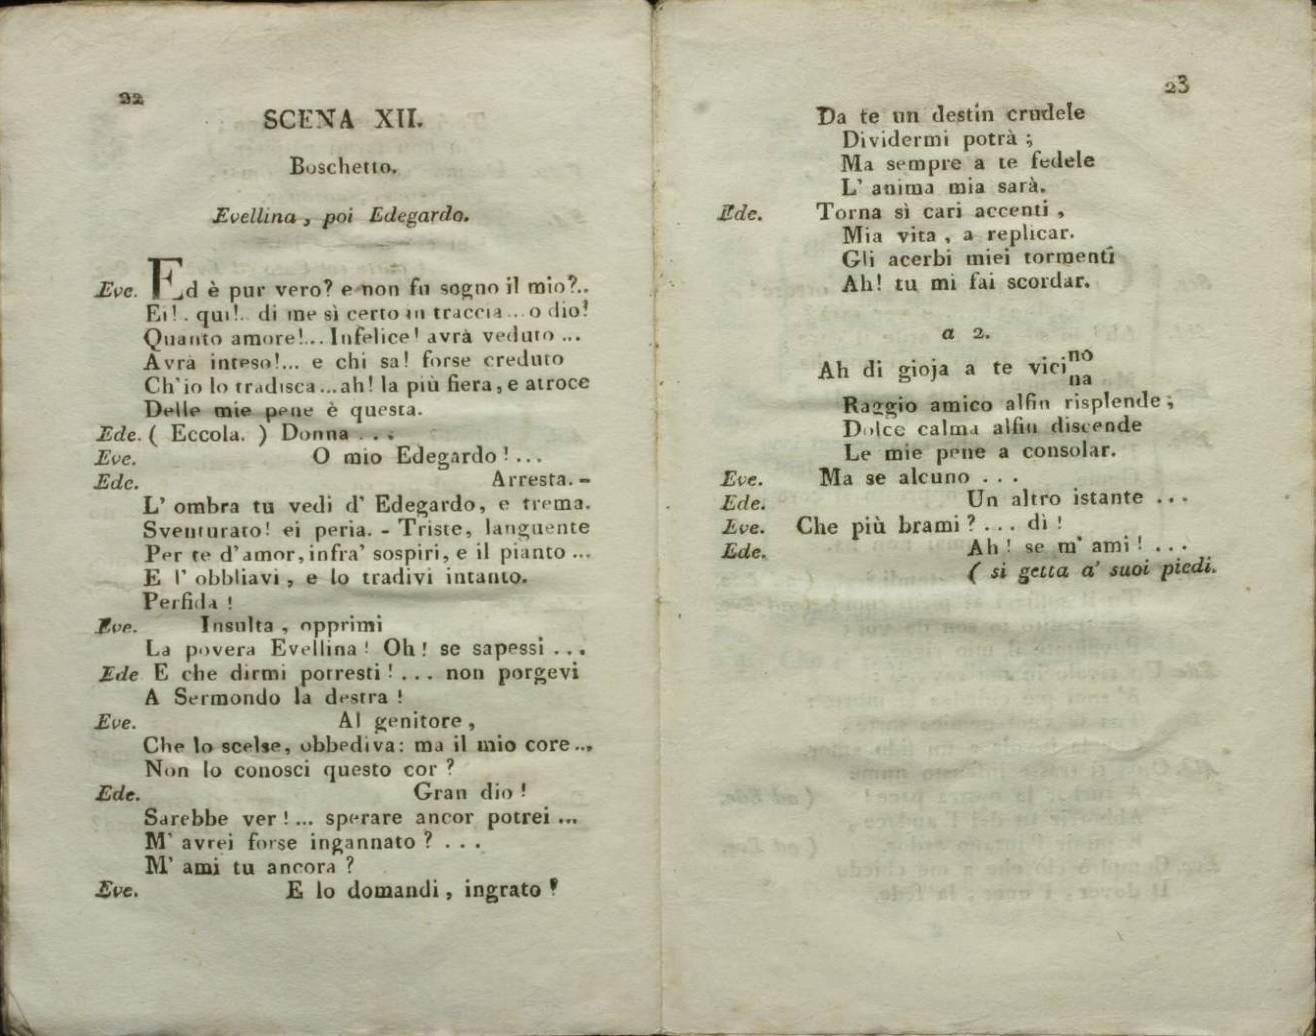 22
SCENA XII.
Boschetto.
Evellina, poi Edegardo.
Eve. Ed è pur vero? e non fu sogno il mio?..
Ei!. qui!. di me sì certo in traccia... o dio!
Quanto amore!... Infelice! avrà veduto ...
Avrà inteso!... e chi sa! forse creduto
Ch'io lo tradisca... ah! la più fiera, e atroce
Delle mie pene è questa.
Ede. ( Eccola. ) Donna ...
Eve. O mio Edegardo!...
Ede. Arresta. -
L' ombra tu vedi d' Edegardo, e trema.
Sventurato! ei peria. - Triste, languente
Per te d'amor, infra' sospiri, e il pianto ...
E l' obbliavi, e lo tradivi intanto.
Perfida!
Eve. Insulta, opprimi
La povera Evellina! Oh! se sapessi ...
Ede E che dirmi potresti!... non porgevi
A Sermondo la destra!
Eve. Al genitore,
Che lo scelse, obbediva: ma il mio core...
Non lo conosci questo cor?
Ede. Gran dio!
Sarebbe ver!... sperare ancor potrei ...
M' avrei forse ingannato? ...
M' ami tu ancora?
Eve. E lo domandi, ingrato!
23
Da te un destin crudele
Dividermi potrà;
Ma sempre a te fedele
L' anima mia sarà.
Ede. Torna sì cari accenti,
Mia vita, a replicar.
Gli acerbi miei tormenti
Ah! tu mi fai scordar.
a 2.
Ah di gioja a te vici no
na
Raggio amico alfin risplende;
Dolce calma alfin discende
Le mie pene a consolar.
Eve. Ma se alcuno ...
Ede. Un altro istante ...
Eve. Che più brami?... dì!
Ede. Ah! se m' ami!...
( si getta a' suoi piedi.